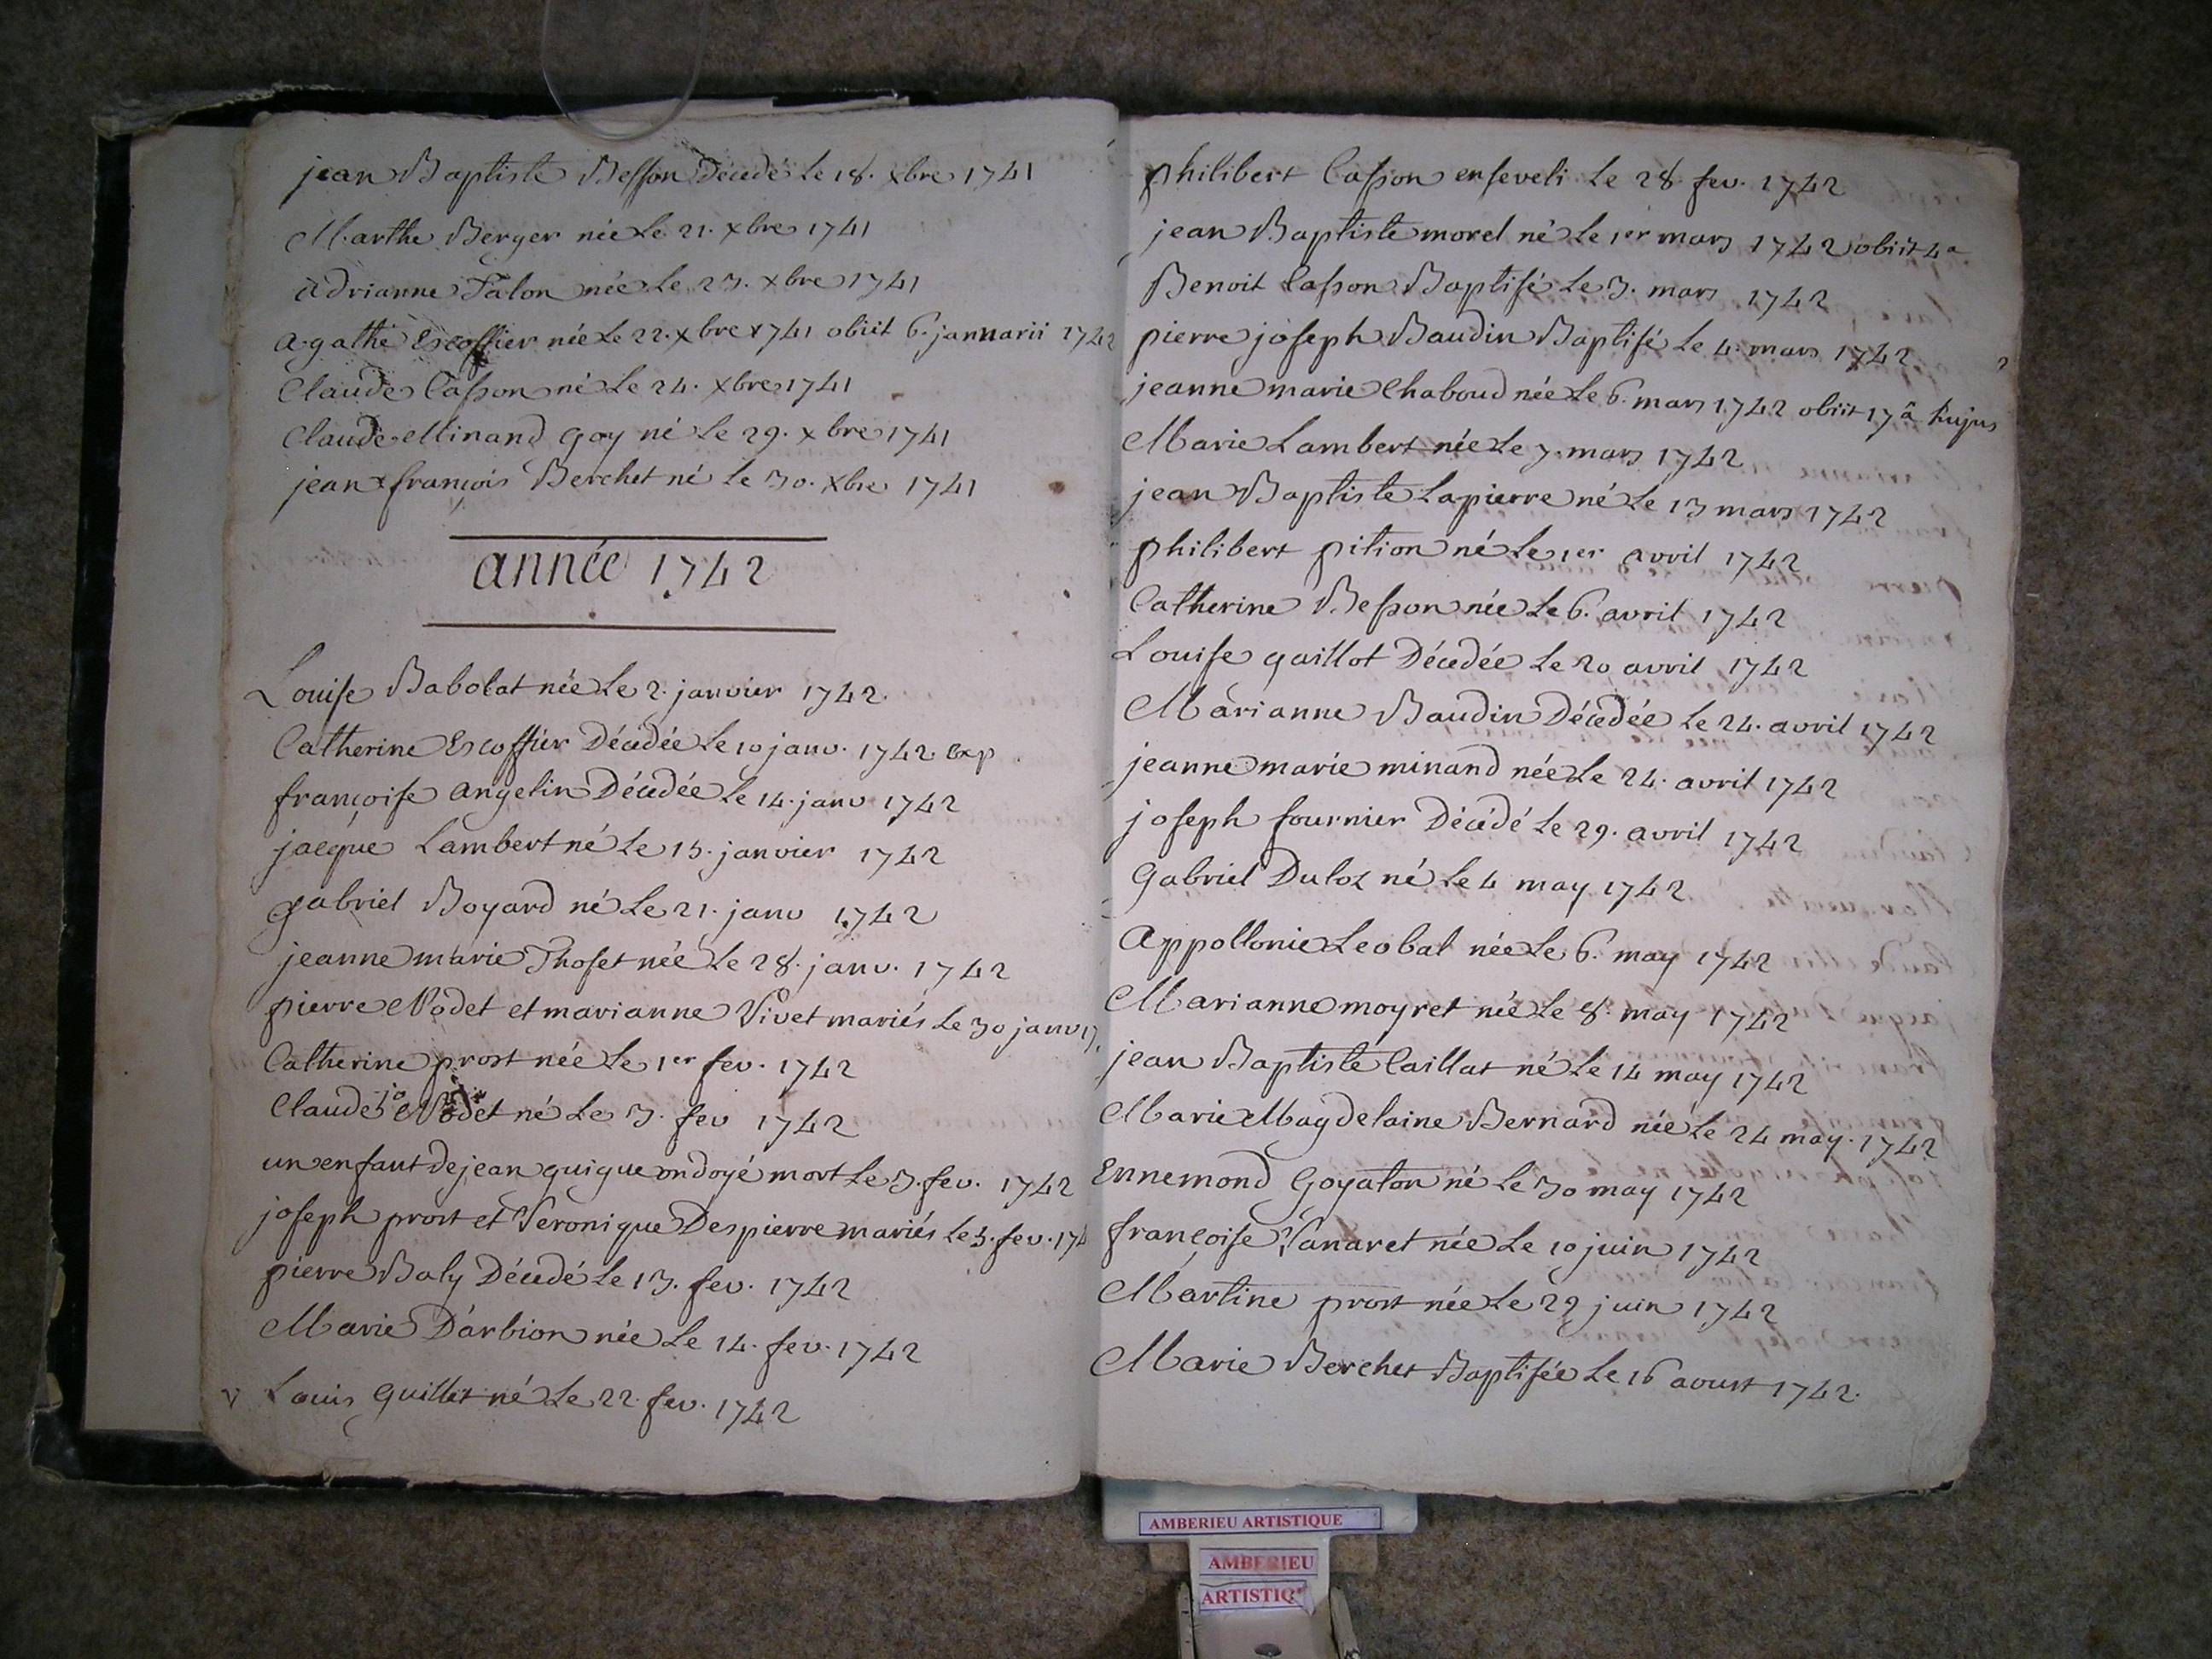 jean Baptiste Besson Décedé Le 18. xbre 1741
Marthe Berger née Le 21. xbre 1741
adrianne Falon née Le 23. xbre 1741
agathe Escoffier née Le 22. xbre 1741 obiit 6. januarii 1742
Claude Casson né Le 24. xbre 1741
Claude Minand Goy né Le 29. xbre 1741
jean francois Berchet né Le 30. xbre 1741
année 1742
Louise Babolat née Le 2. janvier 1742.
Catherine Escoffier Décédée Le 10 janv. 1742. exp
françoise angelin Décédée Le 14. janv 1742
jacque Lambert né Le 15. janvier 1742
gabriel Boyard né Le 21. janv 1742
jeanne marie Thoset née Le 28. janv. 1742
pierre Nodet et marianne Vivet mariés Le 30 janv 17
Catherine prost née Le 1er fev. 1742
Claude Nodet né Le 3. fev 1742
un enfant de jean guigue ondoyé mort Le 3. fev. 1742
joseph prost et Veronique Despierre mariés Le 5. fev. 174
pierre Baly Décedé Le 13. fev. 1742
Marie Darbion née Le 14. fev. 1742
Louis Guillot né Le 22. fev. 1742
philibert Casson enseveli Le 28. fev. 1742
jean Baptiste morel né Le 1er mars 1742 obiit 4a
Benoit Casson Baptisé Le 3. mars 1742
pierre joseph Baudin Baptisé Le 4. mars 1742
jeanne marie Chaboud née Le 6. mars 1742 obiit 17a hujus
Marie Lambert née Le 7. mars 1742
jean Baptiste Lapierre né Le 13 mars 1742
philibert pition né Le 1er avril 1742
Catherine Besson née Le 6. avril 1742
Louise gaillot Décédée Le 20 avril 1742
Marianne Baudin Décedée Le 24. avril 1742
jeanne marie minand née Le 24. avril 1742
joseph fournier Décédé Le 29. avril 1742
Gabriel Duloz né Le 4 may 1742
Appollonie Leobal née Le 6. may 1742
Marianne moyret née Le 8. may 1742
jean Baptiste Caillat né Le 14 may 1742
Marie Magdelaine Bernard née Le 24 may. 1742
Ennemond Goyaton né Le 30 may 1742
françoise Vanaret née Le 10 juin 1742
Martine prost née Le 29 juin 1742
Marie Berchet Baptisée Le 16 aoust 1742.
AMBERIEU ARTISTIQUE
AMBERIEU
ARTISTIQ